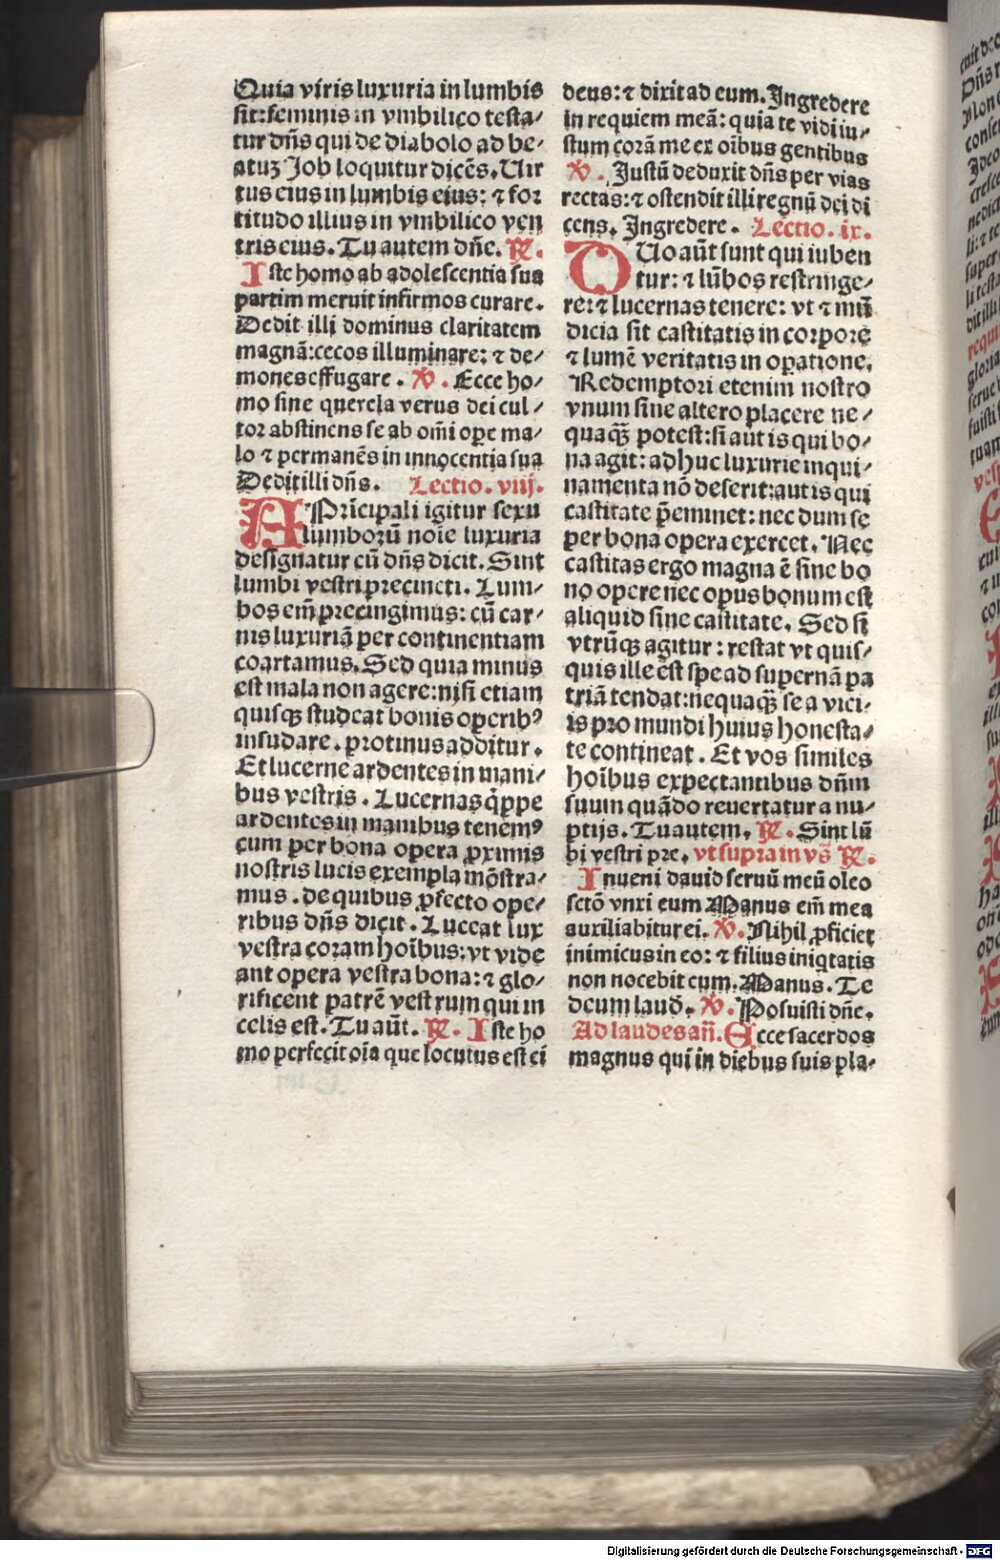 Quia viris luxuria in lumbis
sit: feminis in vmbilico testa/
tur dn̄s qui de diabolo ad be/
atuȝ Job loquitur dicēs. Uir
tus eius in lumbis eius: ⁊ for
titudo illius in vmbilico ven
tris eius. Tu autem dn̄e. ℟.
Iste homo ab adolescentia sua
partim meruit infirmos curare.
Dedit illi dominus claritatem
magnā: cecos illuminare: ⁊ de/
mones effugare. ℣. Ecce ho/
mo sine querela verus dei cul/
tor abstinens se ab om̄i ope ma/
lo ⁊ permanēs in innocentia sua
Dedit illi dn̄s. Lectio. viij.
A Prīcipali igitur sexu
lumborū noīe luxuria
designatur cū dn̄s dicit. Sint
lumbi vestri precincti. Lum/
bos em̄ precingimus: cū car/
nis luxuriā per continentiam
coartamus. Sed quia minus
est mala non agere: nisi etiam
quisqꝫ studeat bonis operibꝰ
insudare. protinus additur.
Et lucerne ardentes in mani/
bus vestris. Lucernas q̇ppe
ardentes in manibus tenemꝰ
cum per bona opera ꝓximis
nostris lucis exempla mōstra/
mus. de quibus ꝓfecto ope/
ribus dn̄s dicit. Luceat lux
vestra coram hoībus: vt vide
ant opera vestra bona: ⁊ glo/
rificent patrē vestrum qui in
celis est. Tu aūt. ℟. Iste ho
mo perfecit oīa que locutus est ei
deus: ⁊ dixit ad eum. Ingredere
in requiem meā: quia te vidi iu/
stum corā me ex oībus gentibus
℣. Justū deduxit dn̄s per vias
rectas: ⁊ ostendit illi regnū dei di
cens. Ingredere. Lectio. ix.
DUo aūt sunt qui iuben
tur: ⁊ lūbos restringe/
re: ⁊ lucernas tenere: vt ⁊ mū
dicia sit castitatis in corpore
⁊ lumē veritatis in opatione.
Redemptori etenim nostro
vnum sine altero placere ne/
quaqꝫ̄ potest: si aut is qui bo/
na agit: adhuc luxurie inqui/
namenta nō deserit: aut is qui
castitate p̄eminet: nec dum se
per bona opera exercet. Nec
castitas ergo magna ē sine bo
no opere nec opus bonum est
aliquid sine castitate. Sed si
vtrūqꝫ agitur: restat vt quis/
quis ille est spe ad supernā pa
triā tendat: nequaqꝫ̄ se a vici/
is pro mundi huius honesta/
te contineat. Et vos similes
hoībus expectantibus dn̄m
suum quādo reuertatur a nu/
ptijs. Tu autem. ℟. Sint lū
bi vestri pre. vt supra in vs̄ ℟.
Inueni dauid seruū meū oleo
sctō vnxi eum Manus em̄ mea
auxiliabitur ei. ℣. Nihil ꝓficiet
inimicus in eo: ⁊ filius iniq̇tatis
non nocebit eum. Manus. Te
deum laud̄. ℣. Posuisti dn̄e.
Ad laudes an̄. Ecce sacerdos
magnus qui in diebus suis pla/
Digitalisierung gefördert durch die Deutsche Forschungsgemeinschaft - DFG